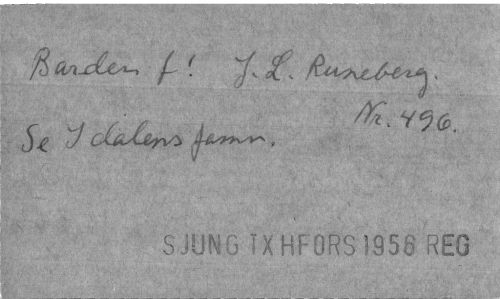 Barden f! J. L. Runeberg.
Nr. 496.
Se I dalens famn.
SJUNG TX HFORS 1958 REG